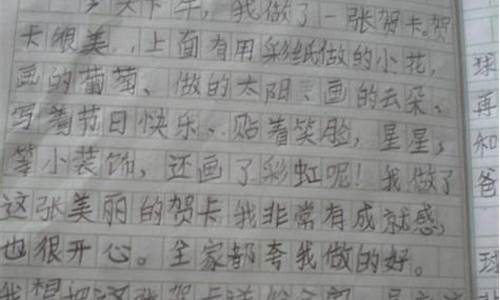 今天下午,我做了一张贺卡。贺
卡很美,上面有用彩纸做的小花,
画的葡萄、做的太阳、画的云朵、
写着节日快乐、贴着笑脸,星星,
等小装饰,还画了彩虹呢!我做了
这张美丽的贺卡我非常有成就感,
也很开心。全家都夸我做的好。
我想把这张贺卡送给
球
再
和
爸
球